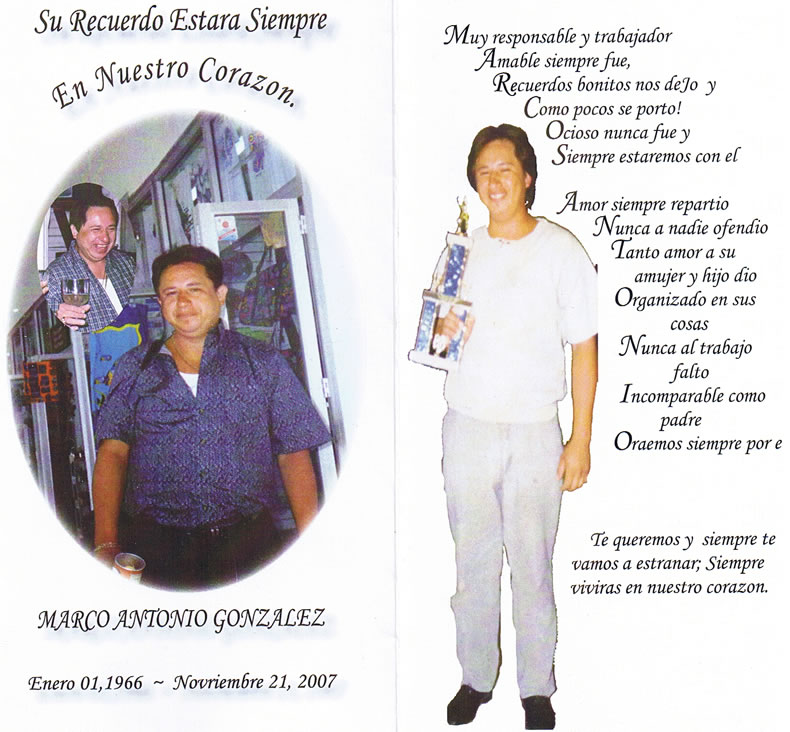 Su Recuerdo Estara Siempre
En Nuestro Corazon.
MARCO ANTONIO GONZALEZ
Enero 01,1966 ~ Novriembre 21, 2007
Muy responsable y trabajador
Amable siempre fue,
Recuerdos bonitos nos deJo y
Como pocos se porto!
Ocioso nunca fue y
Siempre estaremos con el
Amor siempre repartio
Nunca a nadie ofendio
Tanto amor a su
amujer y hijo dio
Organizado en sus
cosas
Nunca al trabajo
falto
Incomparable como
padre
Oraemos siempre por e
Te queremos y siempre te
vamos a estranar; Siempre
viviras en nuestro corazon.